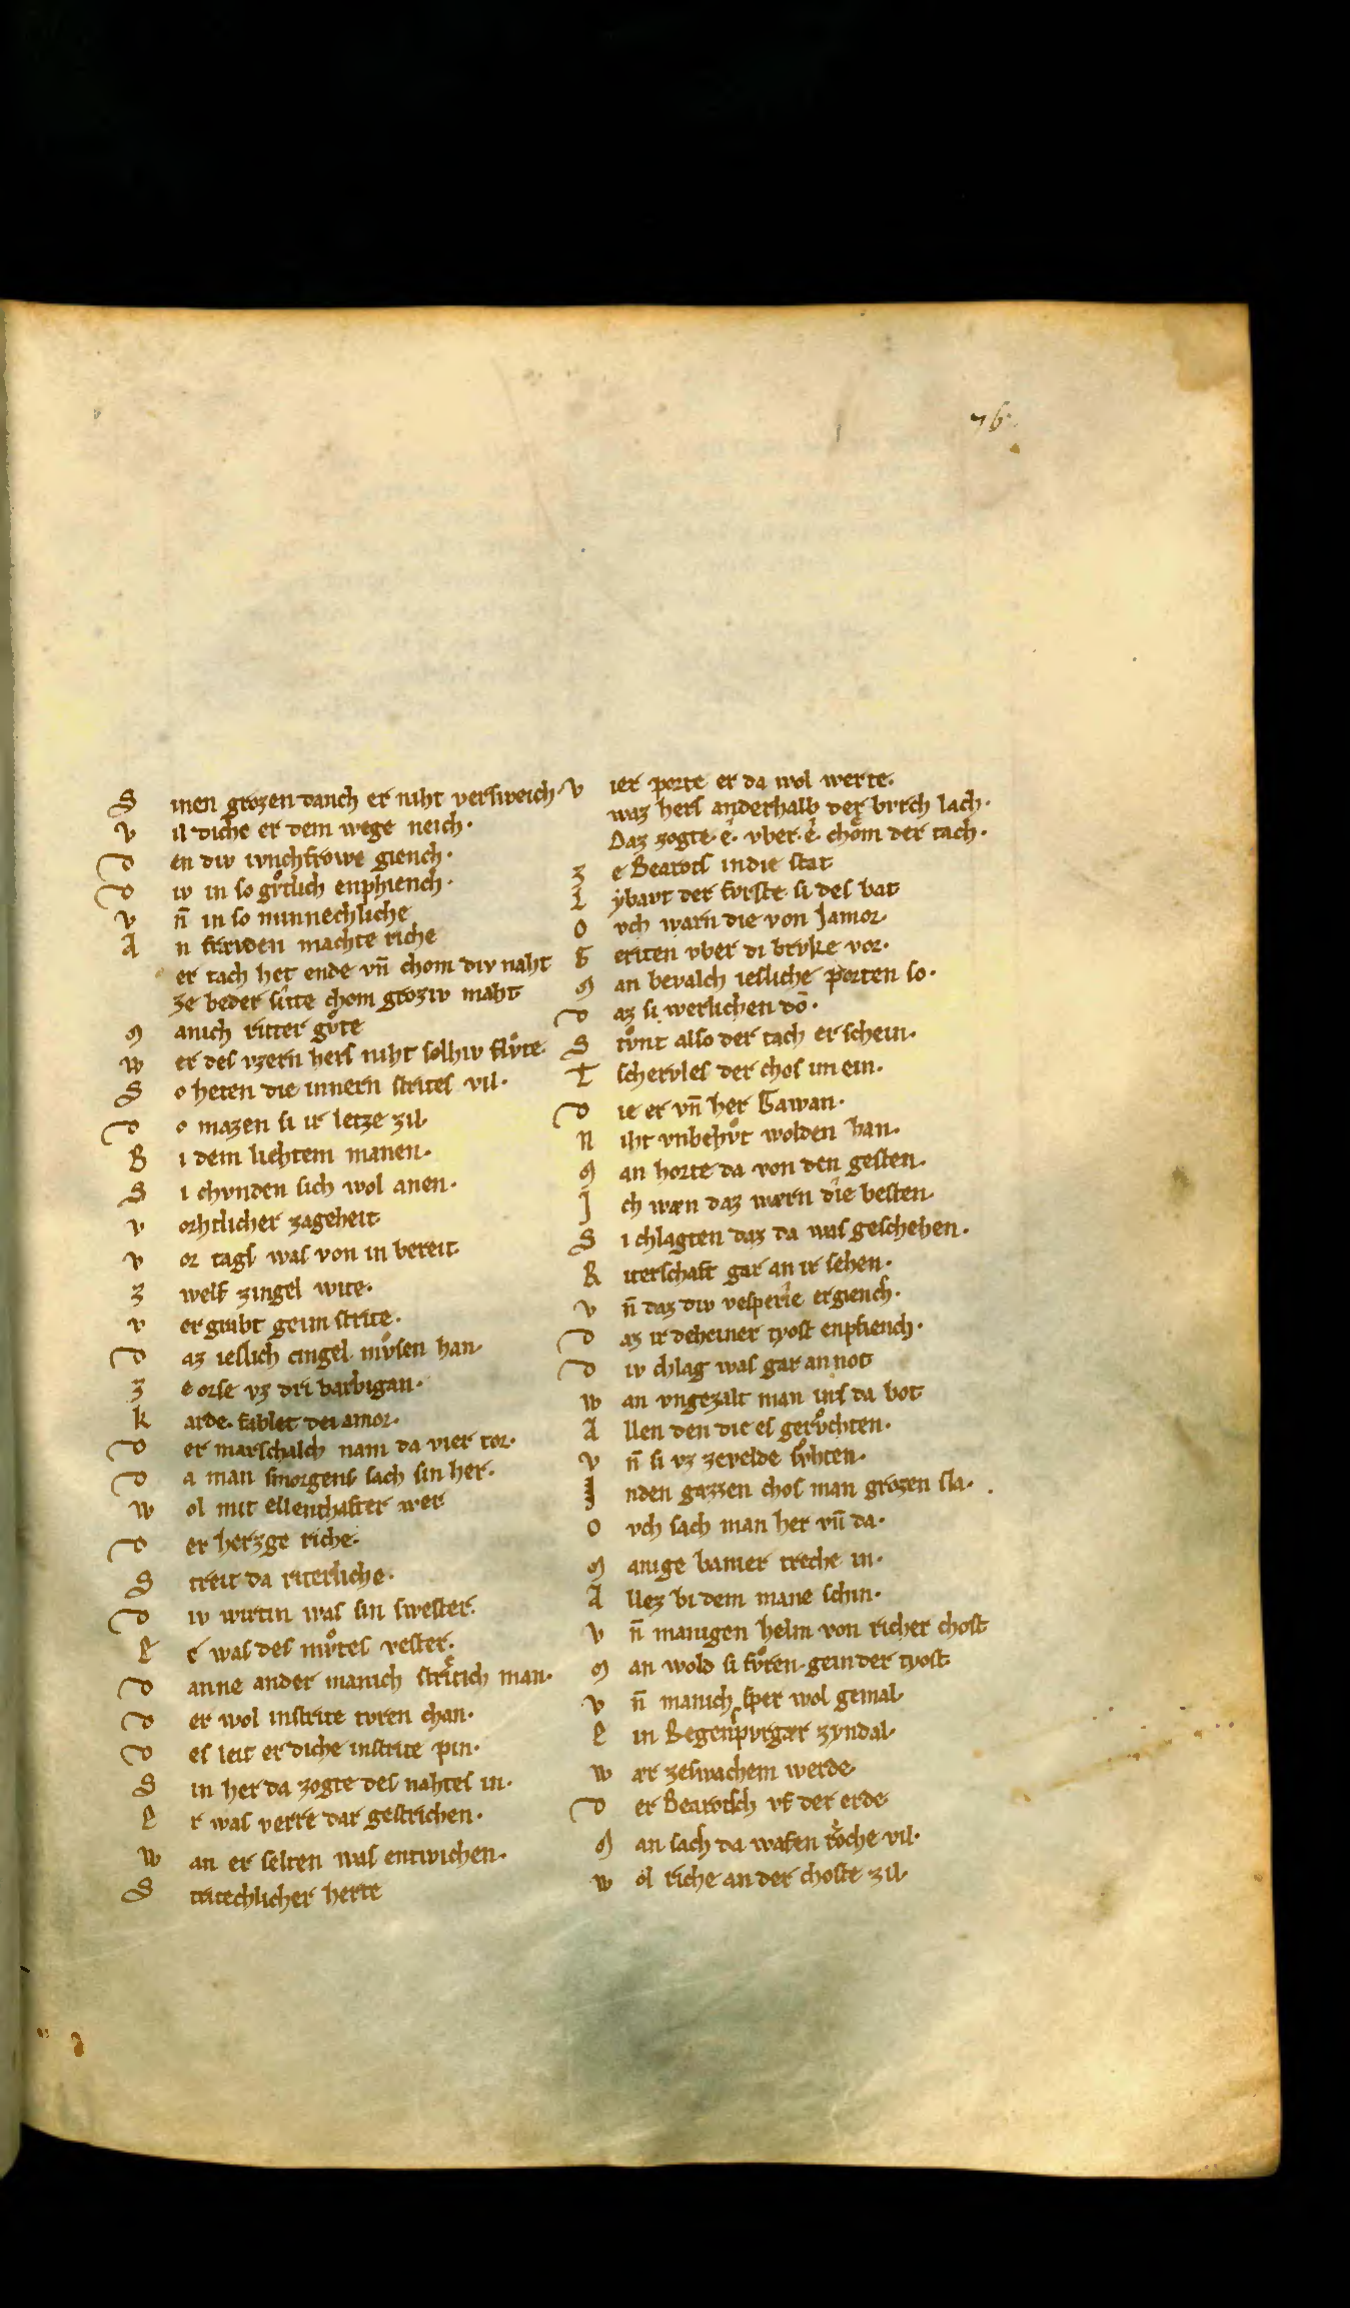 76.
S inen grozen danch er niht versweich·
V il diche er dem wege neich·
D en div ivnchfrowe giench·
D iv in so gv̊tlich enphiench·
V n̄ in so minnechliche
A n frævden machte riche
er tach het ende vn̄ chom div naht
ze beder site chom groziv maht
M anich ritter gv̊te
W er des vzern hers niht solhiv flv̊te·
S o heten die innern strites vil·
D o mazen si ir letze zil
B i dem liehtem manen·
S i chvnden sich wol anen·
V orhtlicher zageheit
V or tags was von in bereit·
Z welf zingel wite·
V ergrabt gein strite·
D az ieslich cingel mv̊sen han·
Z e orse vz dri barbigan·
K arde· fablet dei amor·
D er marschalch nam da vier tor·
D a man smorgens sach sin her·
W ol mit ellenthafter wer
D er herzge riche·
S treit da riterliche·
D iv wirtin was sin swester·
E r was des mv̊tes vester·
D anne ander manich stritich man·
D er wol in strite tvren chan·
D es leit er diche in strite pin·
S in her da zogte des nahtes in·
E r was verre dar gestrichen·
W an er selten was entwichen·
S tritechlicher herte
V ier porte er da wol werte·
waz hers anderhalb der brvch lach·
Daz zogte·e·vber·e· chom der tach·
Z e Bearots in die stat
L ẏbavt der fvrste si des bat
O vch warn die von Jamor
G eriten vber di brvke vor·
M an bevalch iesliche porten so·
D az si werlichen do·
S tv̊nt also der tach erschein·
T schervles der chos im ein·
D ie er vn̄ her Gawan·
N iht vnbehv̊t wolden han·
M an horte da von den gesten·
J ch wæn daz wærn die besten·
S i chlagten daz da was geschehen·
R iterschaft gar an ir sehen·
V n̄ daz div vesperie ergiench·
D az ir deheiner tyost enpfiench·
D iv chlag was gar an not
W an vngezalt man ins da bot
A llen den die es gerv̊chten·
V n̄ si vz zevelde sv̊hten·
I nden gazzen chos man grozen sla·
O vch sach man her vn̄ da·
M anige banier treche in·
A llez bi dem mane schin·
V n̄ manigen helm von richer chost
M an wold si fv̊ren gein der tyost
V n̄ manich sper wol gemal·
E in Regenspvrgær zyndal·
W ær zeswachem werde·
D er Bearotsch vf der erde
M an sach da wafen roche vil·
W ol riche an der choste zil·